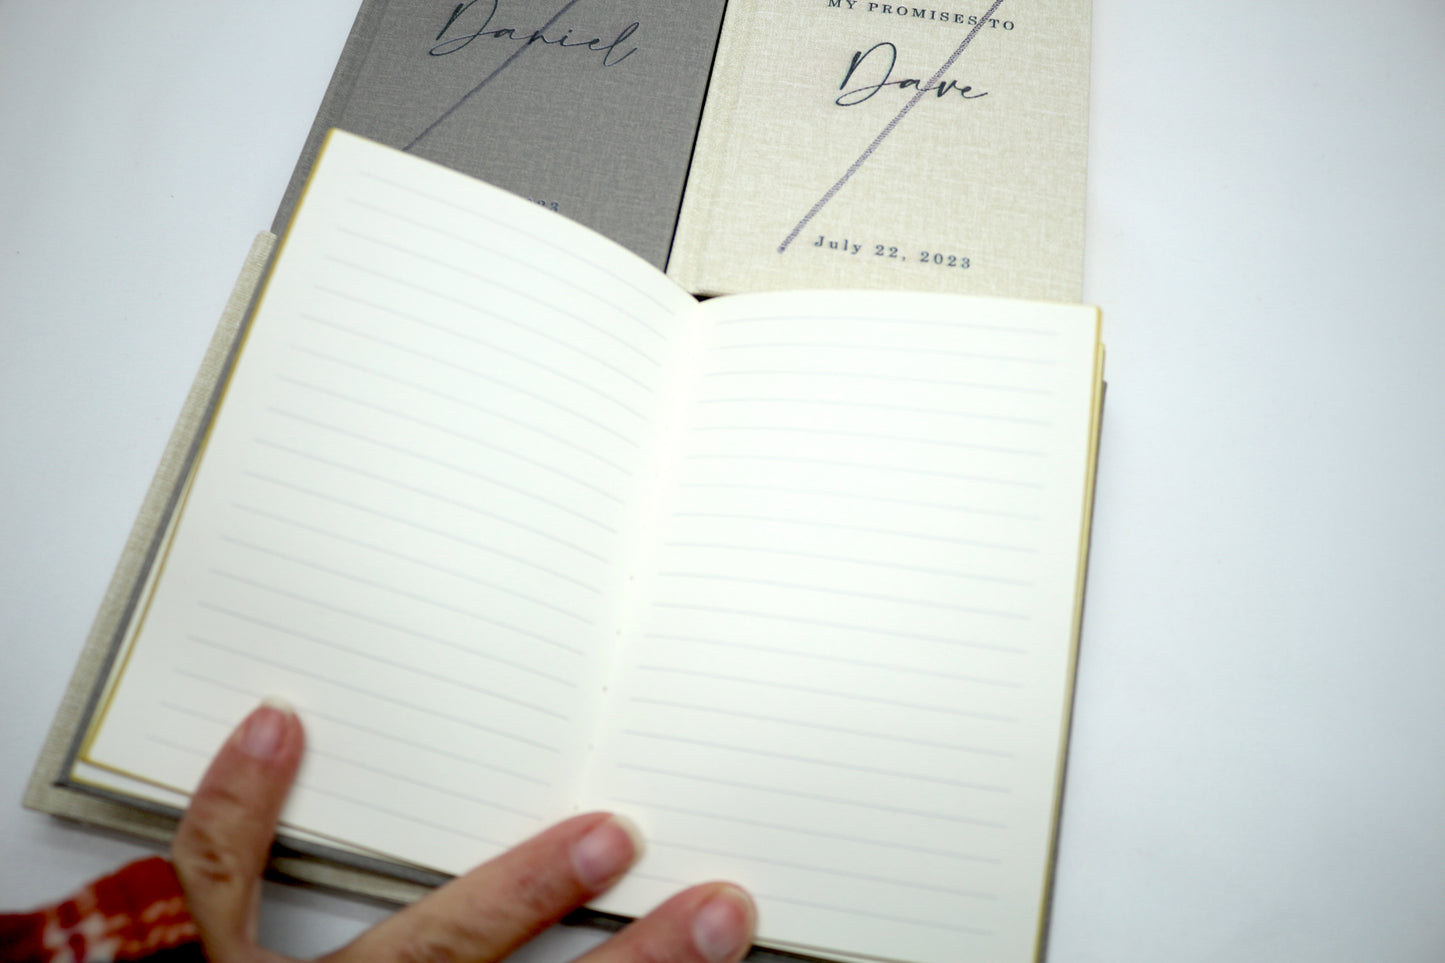 Daniel
23
MY PROMISES TO
Dave
July 22, 2023